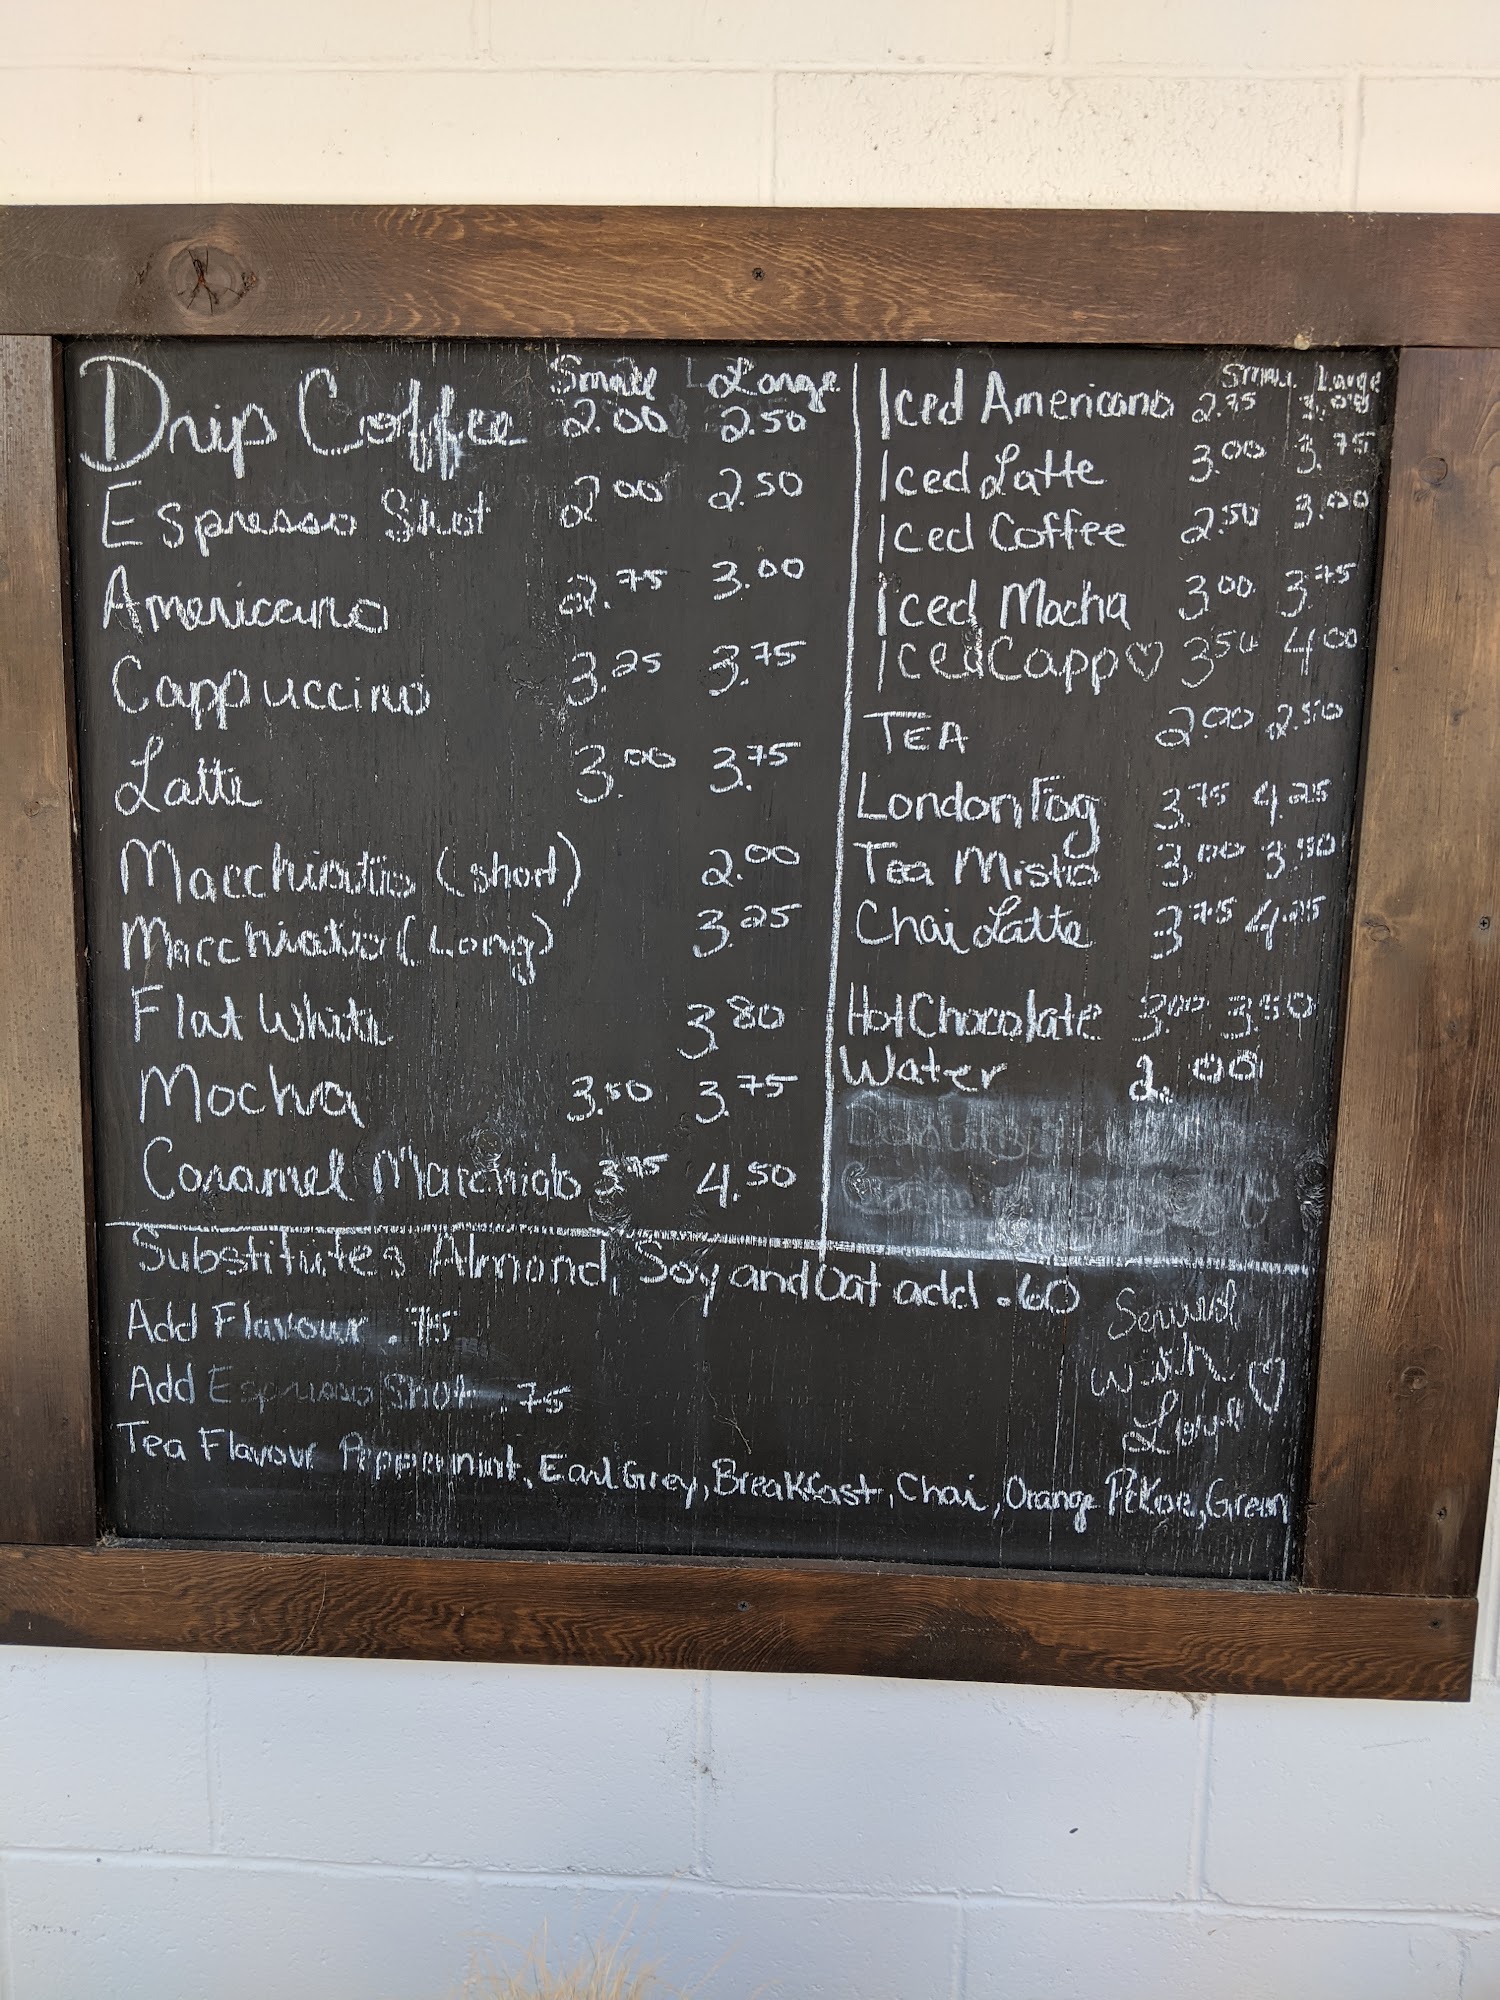 Small Large
Drip Coffee 2.00 2.50
Espresso Shot 2.00 2.50
Americano 2.75 3.00
Cappuccino 3.25 3.75
Latte 3.00 3.75
Macchiatio (short) 2.00
Macchiatio (Long) 3.25
Flat White 3.80
Mocha 3.50 3.75
Caramel Macchiato 3.75 4.50
Small Large
Iced Americano 2.75 3.00
Iced Latte 3.00 3.75
Iced Coffee 2.50 3.00
Iced Mocha 3.00 3.75
Iced Capp♡ 3.50 4.00
TEA 2.00 2.50
London Fog 3.75 4.25
Tea Misto 3.00 3.50
Chai Latte 3.75 4.25
Hot Chocolate 3.00 3.50
Water 2.00
Substitutes Almond, Soy and Oat add .60
Add Flavour .75
Add Espresso Shot .75
Tea Flavour Peppermint, Earl Grey, Breakfast, Chai, Orange Pekoe, Green
Served
with
Love ♡